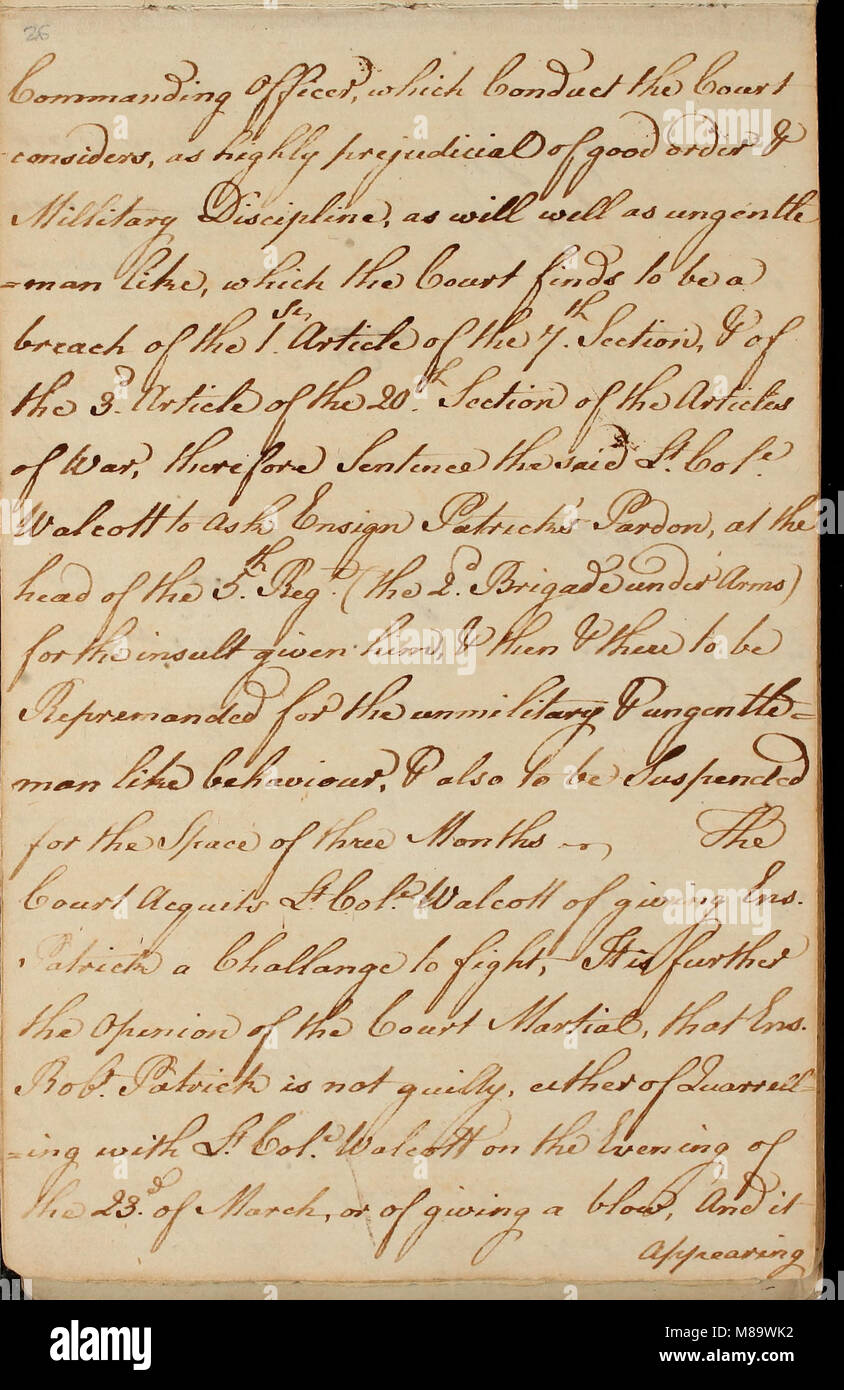 26
Commanding Officer, which Conduct the Court
considers, as highly prejudicial of good order &
Millitary Discipline, as will well as ungentle
=man like, which the Court finds to be a
breach of the 1st. Article of the 7th. Section, & of
the 3d. Article of the 20th. Section of the Articles
of War, therefore Sentence the said Lt. Col.e
Walcott to ask Ensign Patrick's Pardon, at the
head of the 5th. Regt. (the 2d. Brigade under Arms)
for the insult given him, & then & there to be
Repremanded for the unmilitary & ungentle=
man like behaviour, & also to be Suspended
for the Space of three Months ~ The
Court Acquits Lt. Col.e Walcott of giving Ens.
Patrick a Challange to fight, It is further
the Openion of the Court Martial, that Ens.
Robt. Patrick is not guilty, either of Quarrell=
=ing with Lt. Col.e Walcott on the Evening of
the 23d. of March, or of giving a blow, And it
Appearing
alamy
alamy
alamy
alamy
Image ID: M89WK2
www.alamy.com